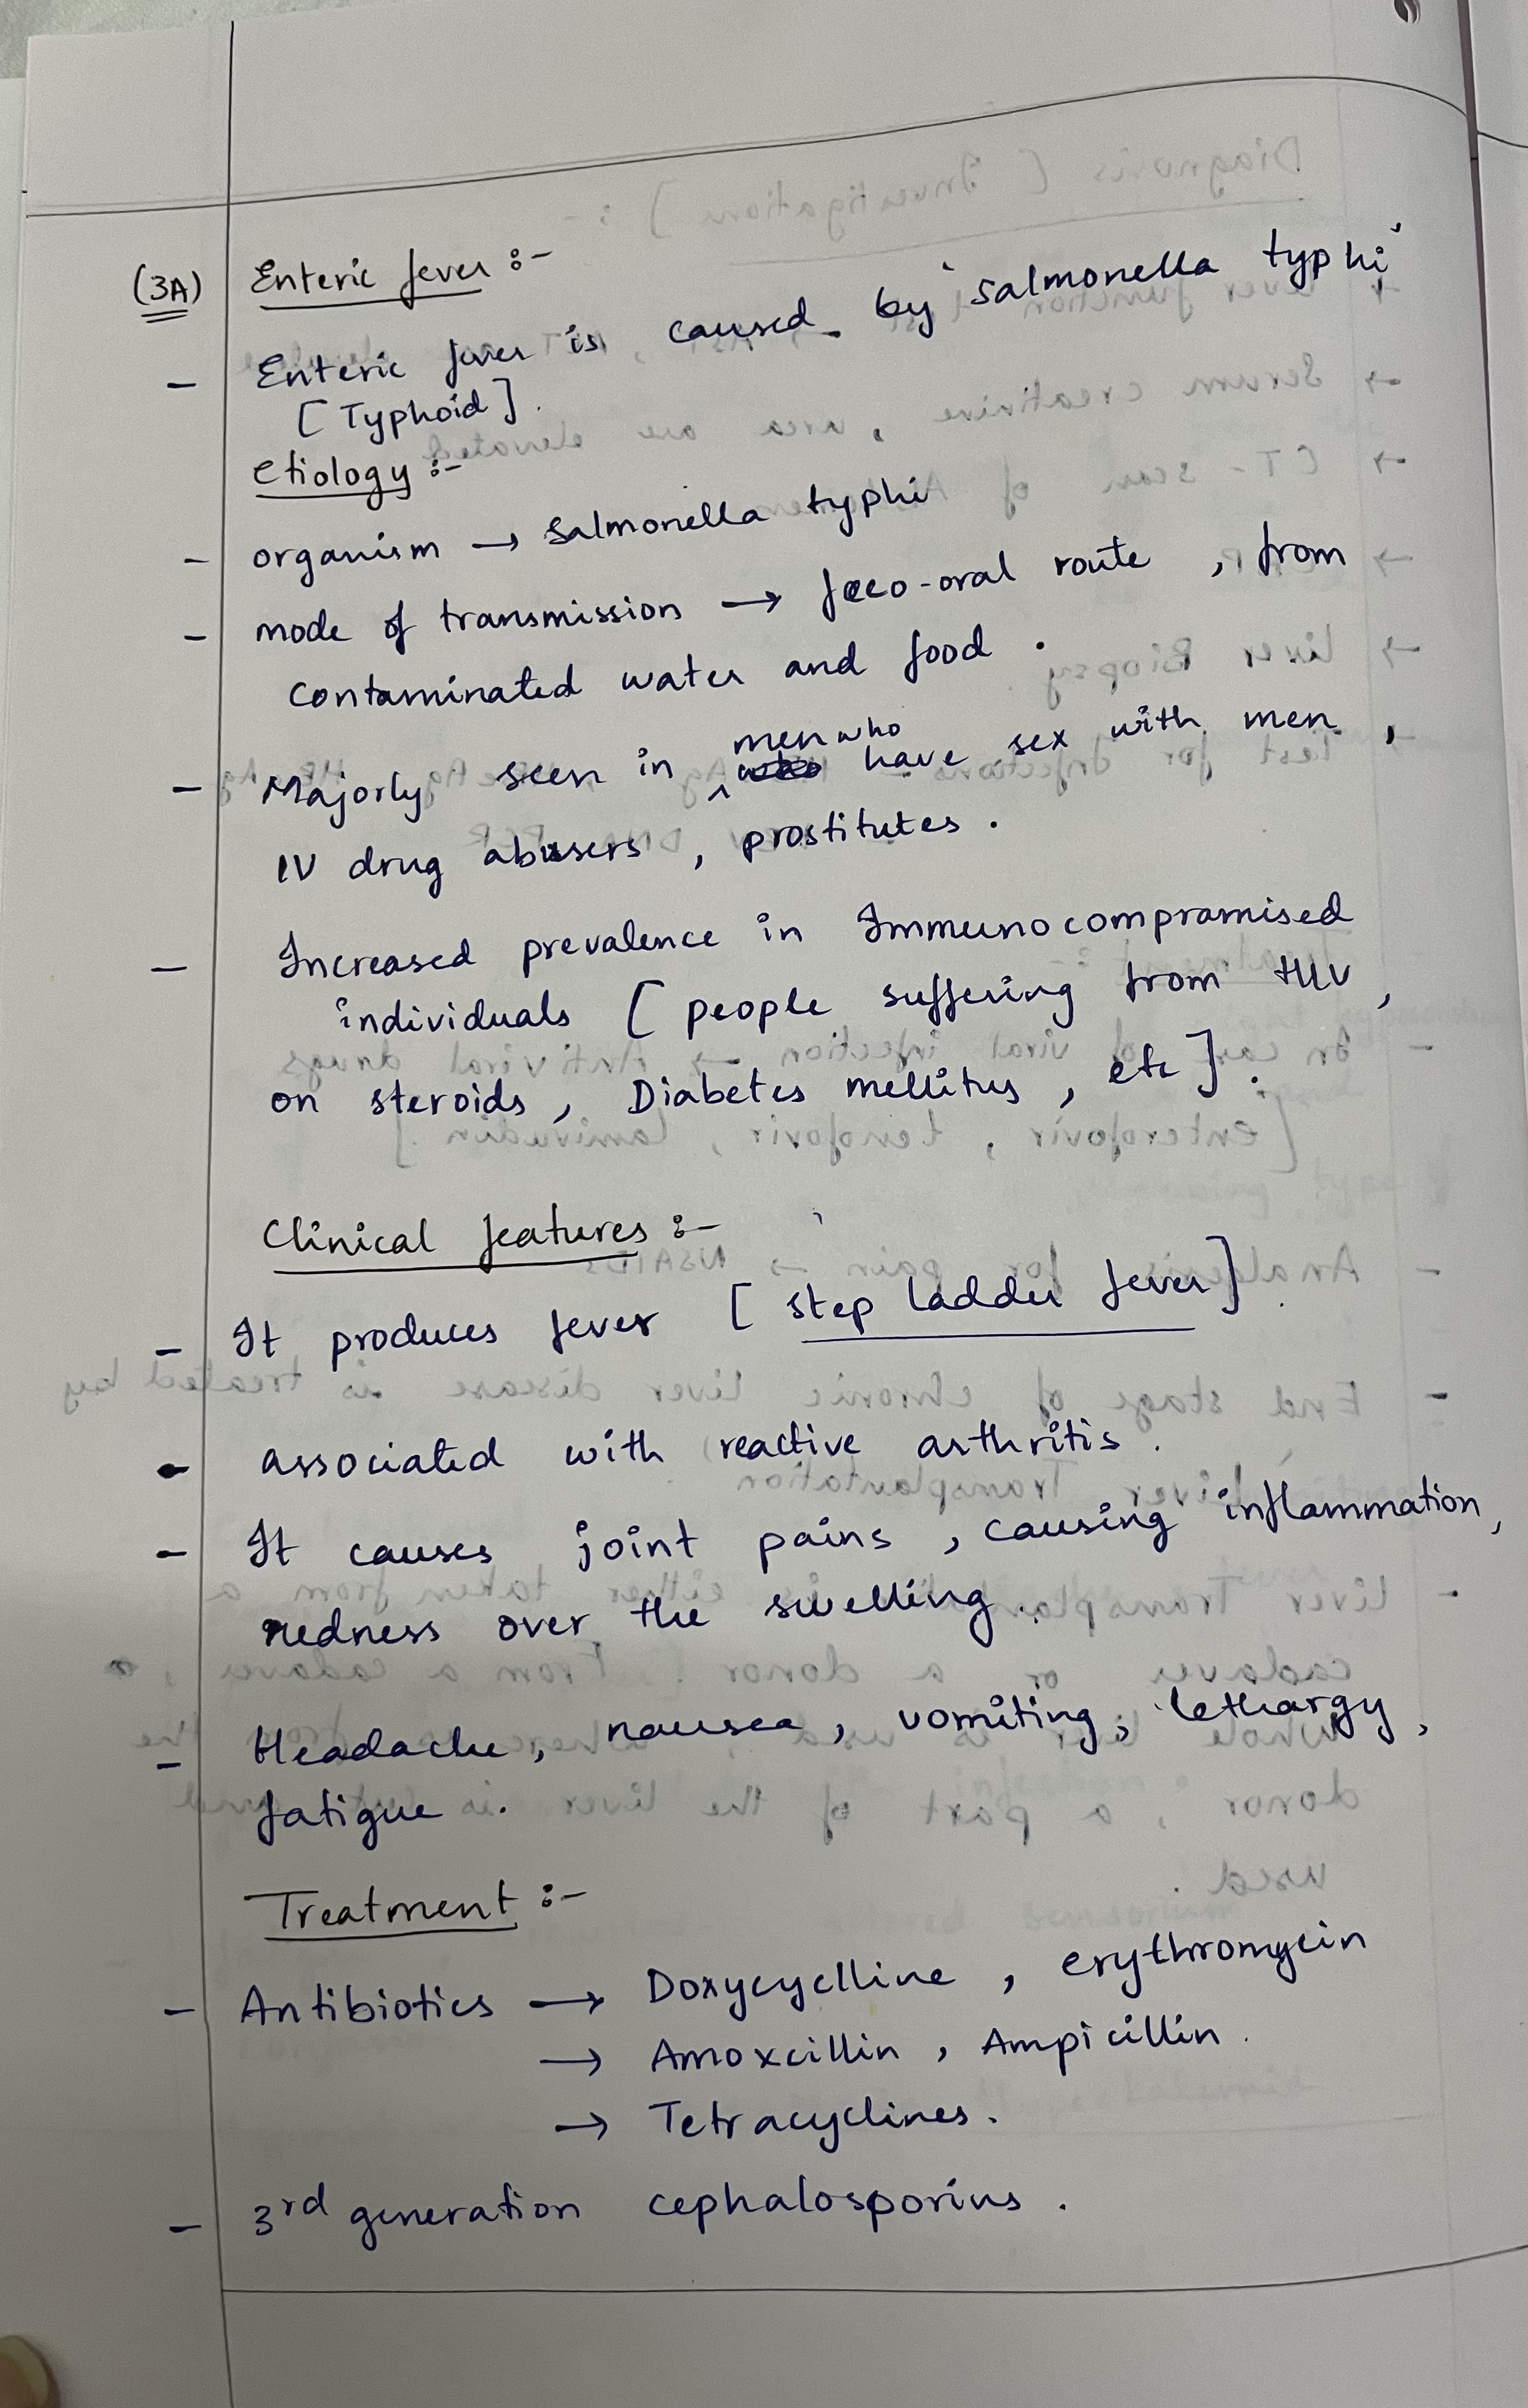 (3A) Enteric fever :-
- Enteric fever is caused by "Salmonella typhi"
[Typhoid].
etiology :-
- organism → Salmonella typhi
- mode of transmission → feco-oral route , from
contaminated water and food .
- Majorly seen in men who have sex with men ,
IV drug abusers , prostitutes .
- Increased prevalence in Immunocompromised
individuals [ people suffering from HIV ,
on steroids , Diabetes mellitus , etc ] .
Clinical features :-
- It produces fever [ step ladder fever ] .
- associated with reactive arthritis .
- It causes joint pains , causing inflammation ,
redness over the swelling .
- Headache , nausea , vomiting , lethargy ,
fatigue .
Treatment :-
- Antibiotics → Doxycyclline , erythromycin
→ Amoxcillin , Ampicillin .
→ Tetracyclines .
- 3rd generation cephalosporins .